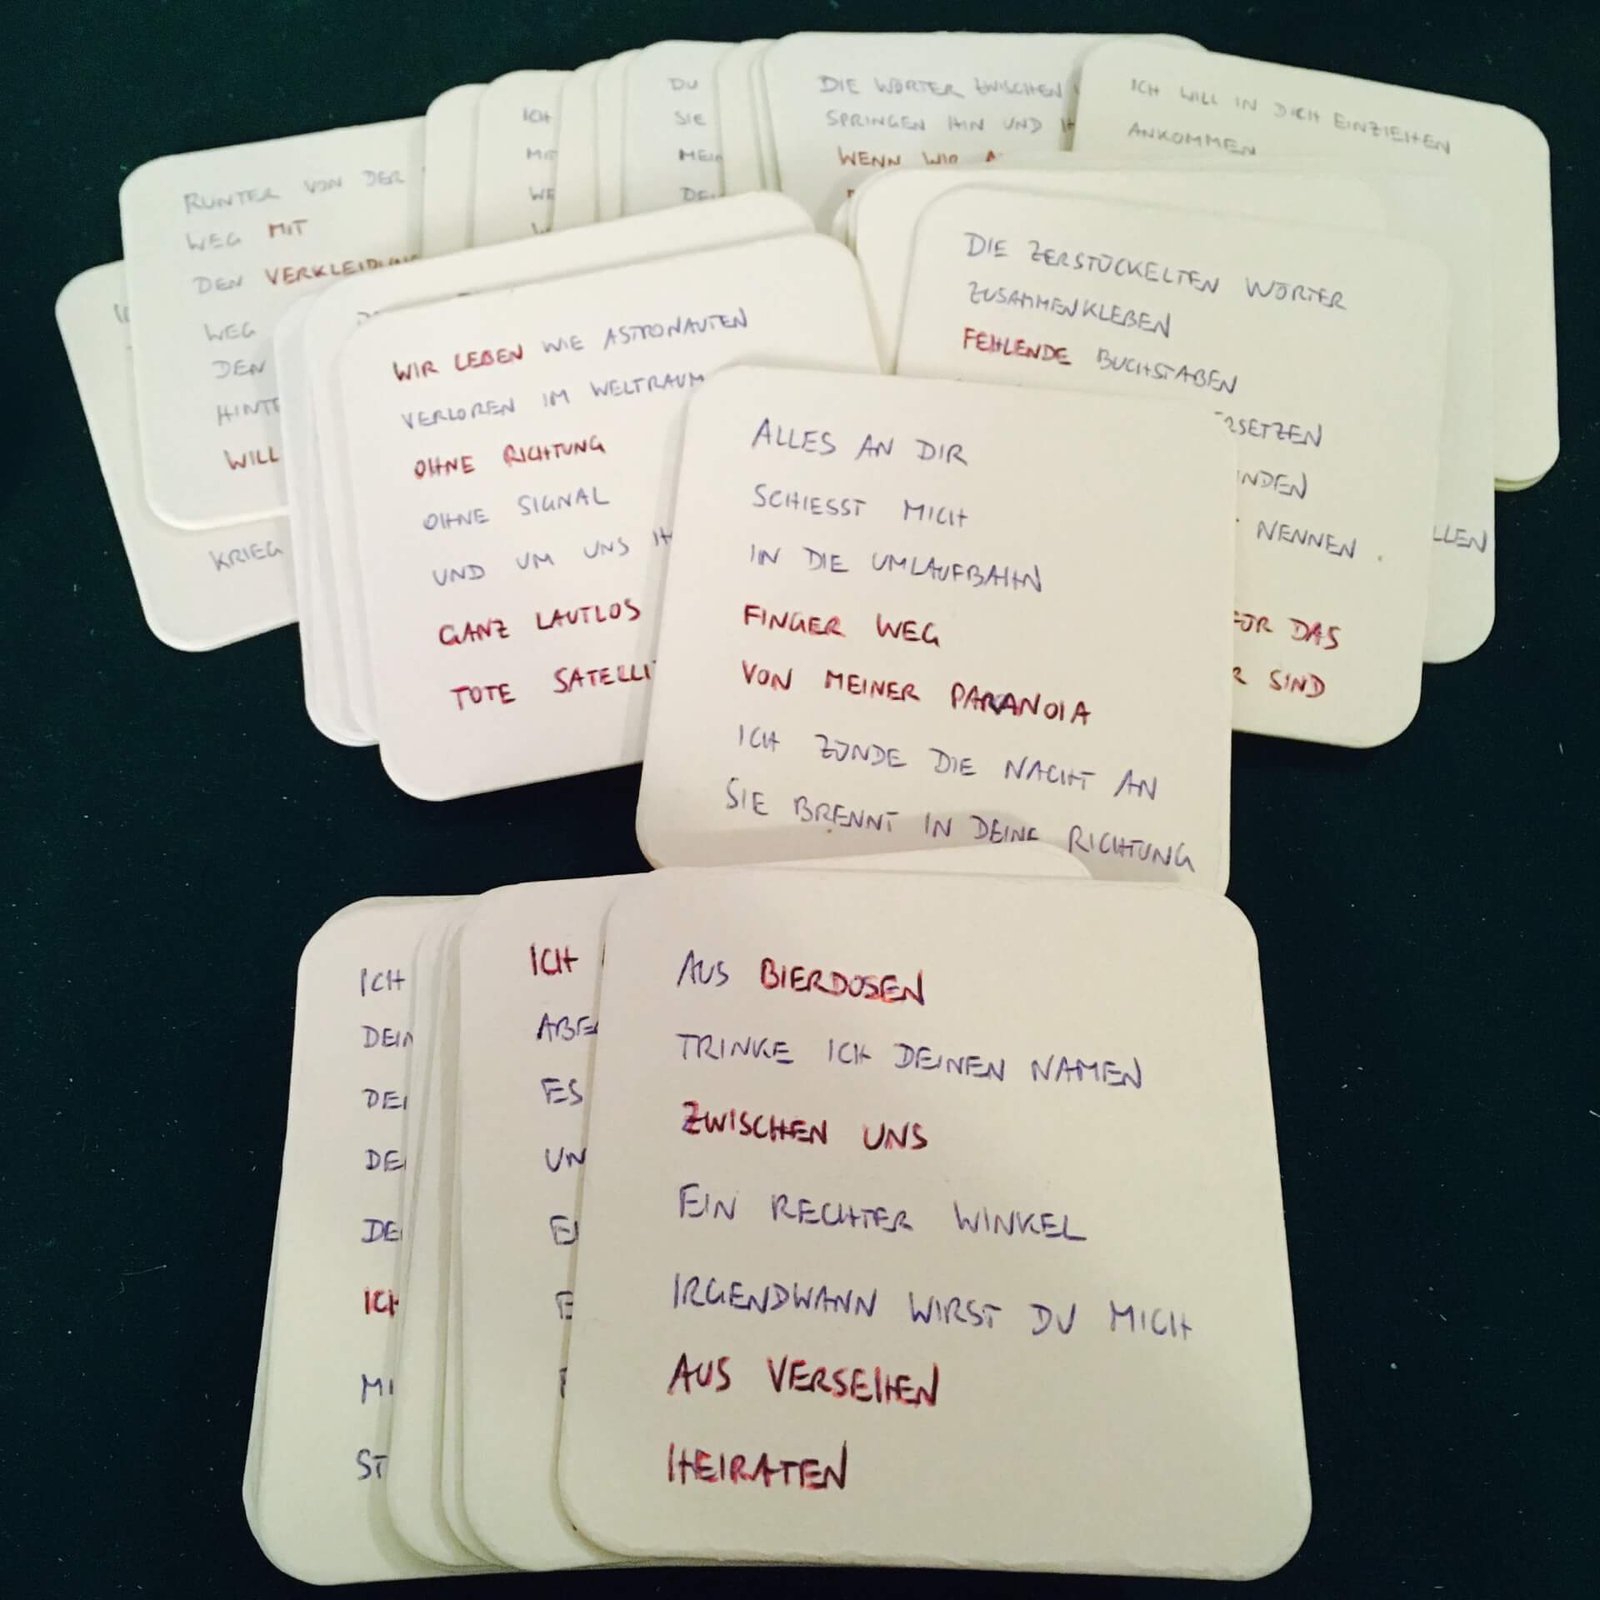 RUNTER VON DER
WEG MIT
DEN
WEG
DEN
WILL
KRIEG
ICH
WE
DU
SIE
DIE WÖRTER ZWISCHEN
SPRINGEN HIN UND
WENN WIR
ICH WILL IN DICH EINZIEHEN
ANKOMMEN
WIR LEBEN WIE ASTRONAUTEN
VERLOREN IM WELTRAUM
OHNE RICHTUNG
OHNE SIGNAL
UND UM UNS
GANZ LAUTLOS
TOTE
DIE ZERSTÜCKELTEN WÖRTER
ZUSAMMENKLEBEN
FEHLENDE BUCHSTABEN
NENNEN
DAS
SIND
ALLES AN DIR
SCHIESST MICH
IN DIE UMLAUFBAHN
FINGER WEG
VON MEINER PARANOIA
ICH ZÜNDE DIE NACHT AN
SIE BRENNT IN DEINE RICHTUNG
ICH
ICH
ES
AUS BIERDOSEN
TRINKE ICH DEINEN NAMEN
ZWISCHEN UNS
EIN RECHTER WINKEL
IRGENDWANN WIRST DU MICH
AUS VERSEHEN
HEIRATEN